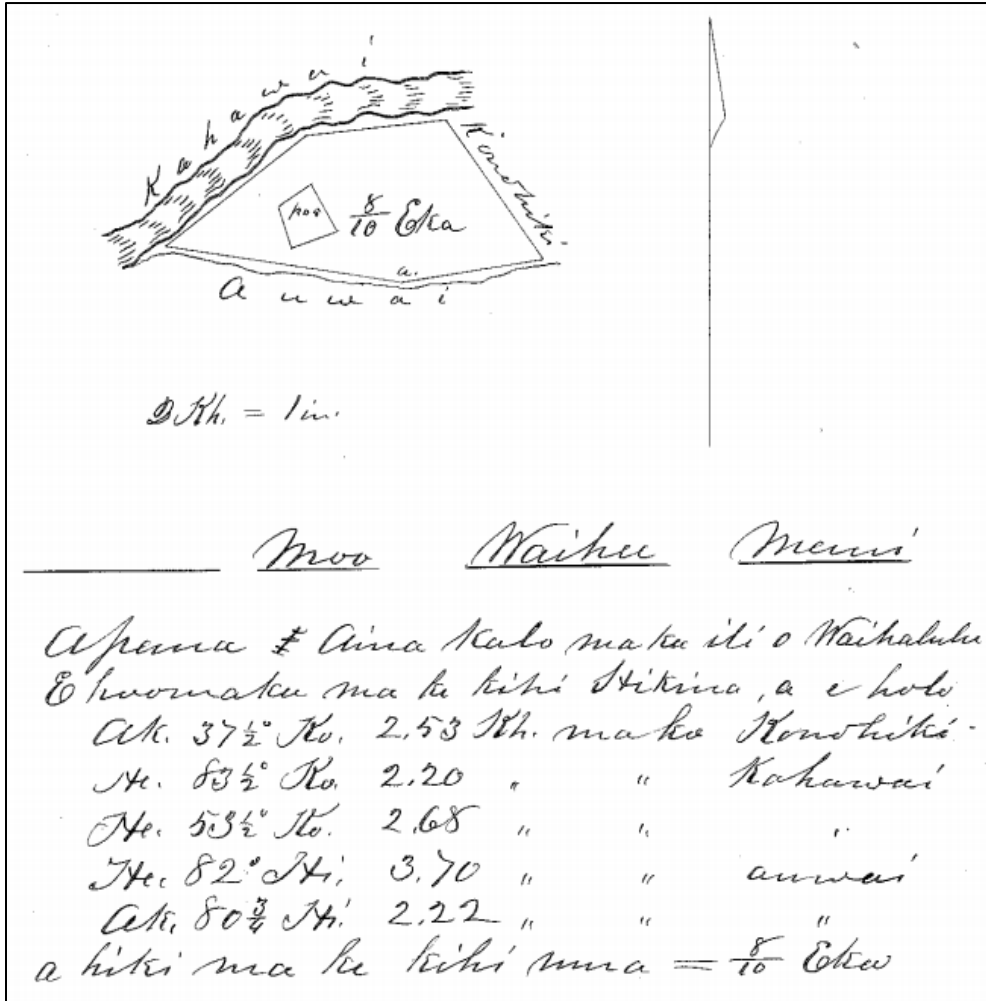 Kahawai
Konohiki
poa
8/10 Eka
a.
Auwai
2 Kh. = 1 in.
Moo Waihee Maui
Apana 1 Aina kalo ma ka ili o Waihalulu
E hoomaka ma ke kihi Hikina, a e holo
Ak. 37½° Ko. 2.53 Kh. ma ko Konohiki-
He. 83½° Ko. 2.20 " " Kahawai
He. 53½° Ko. 2.68 " " "
He. 82° Hi. 3.70 " " auwai
Ak. 80¾ Hi. 2.22 " " "
a hiki ma ke kihi mua = 8/10 Eka